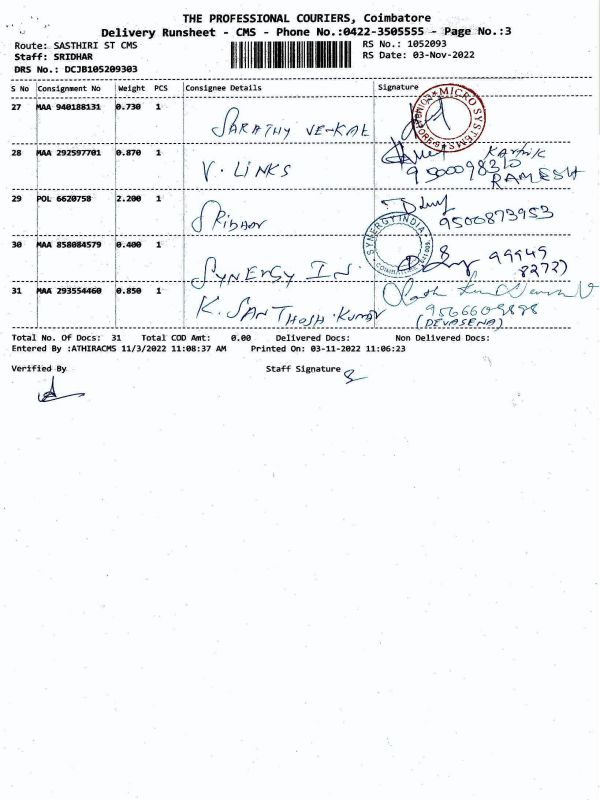 THE PROFESSIONAL COURIERS, Coimbatore
Delivery Runsheet - CMS - Phone No.:0422-3505555 - Page No.:3
Route: SASTHIRI ST CMS
RS No.: 1052093
Staff: SRIDHAR
RS Date: 03-Nov-2022
DRS No.: DCJB105209303
S No Consignment No Weight PCS Consignee Details Signature
27 MAA 940188131 0.730 1 SARATHY
MICRO SYSTEMS
28 MAA 292597701 0.870 1 V. LINKS
Karthik
9500098310
RAMESH
29 POL 6620758 2.200 1 SRIDHAR
9500873953
30 MAA 858084579 0.400 1 SYNERGY IN.
SYNERGY INDIA
99949
82727
31 MAA 293554460 0.850 1 K. SANTHOSH. KUMAR
(DEVASENA)
Total No. Of Docs: 31 Total COD Amt: 0.00 Delivered Docs: Non Delivered Docs:
Entered By :ATHIRACMS 11/3/2022 11:08:37 AM Printed On: 03-11-2022 11:06:23
Verified By Staff Signature